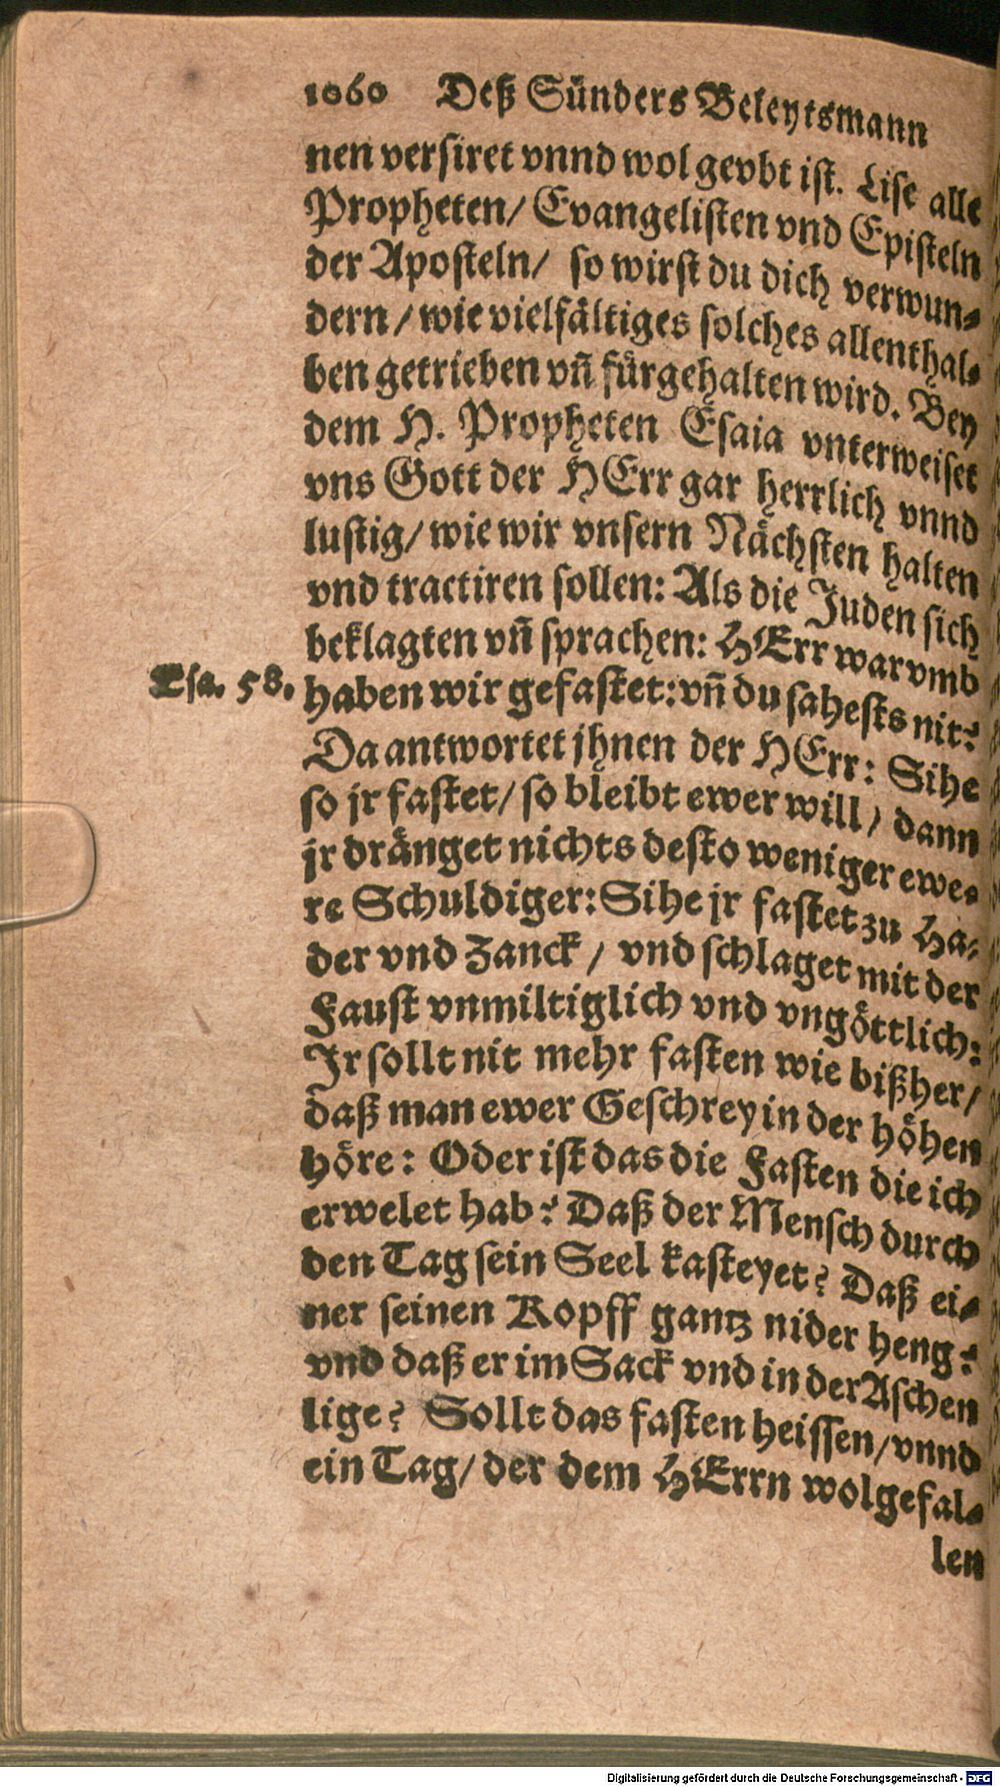 1060 Deß Sünders Beleytsmann
nen versiret vnnd wol gevbt ist. Lise alle
Propheten/ Evangelisten vnd Episteln
der Aposteln/ so wirst du dich verwun-
dern/ wie vielfältiges solches allenthal-
ben getrieben vñ fürgehalten wird. Bey
dem H. Propheten Esaia vnterweiset
vns Gott der HErr gar herrlich vnnd
lustig/ wie wir vnsern Nächsten halten
vnd tractiren sollen: Als die Juden sich
beklagten vñ sprachen: HErr warvmb
Esa. 58. haben wir gefastet: vñ du sahests nit?
Da antwortet jhnen der HErr: Sihe
so jr fastet/ so bleibt ewer will/ dann
jr dränget nichts desto weniger ewe-
re Schuldiger: Sihe jr fastet zu Ha-
der vnd Zanck/ vnd schlaget mit der
Faust vnmiltiglich vnd vngöttlich:
Ir sollt nit mehr fasten wie bißher/
daß man ewer Geschrey in der höhen
höre: Oder ist das die Fasten die ich
erwelet hab? Daß der Mensch durch
den Tag sein Seel kasteyet? Daß ei-
ner seinen Kopff gantz nider heng?
vnd daß er im Sack vnd in der Aschen
lige? Sollt das fasten heissen/ vnnd
ein Tag/ der dem HErrn wolgefal-
len
Digitalisierung gefördert durch die Deutsche Forschungsgemeinschaft - DFG